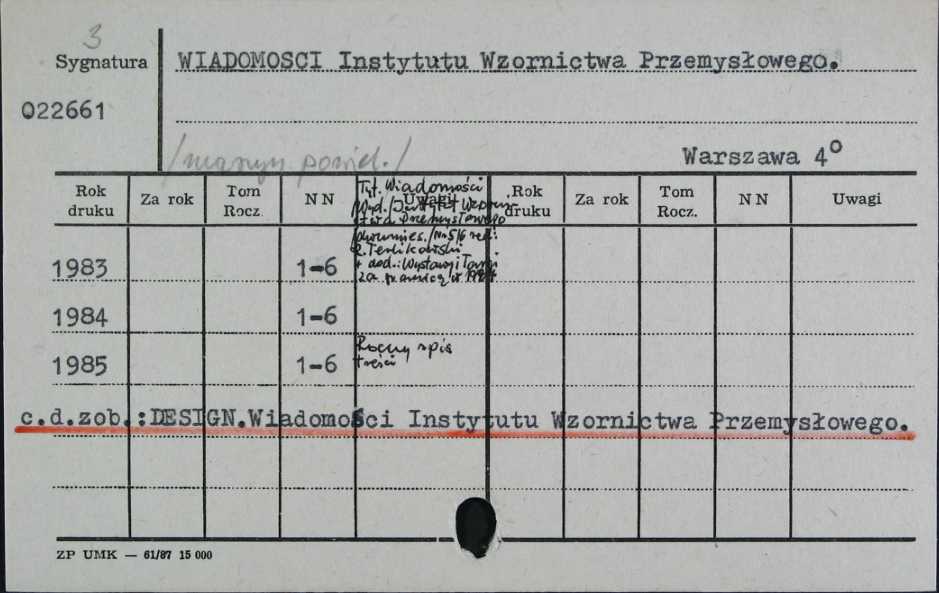 3
Sygnatura
WIADOMOSCI Instytutu Wzornictwa Przemysłowego.
022661
/maszyn. powiel./
Warszawa 4°
Rok druku Za rok Tom Rocz. NN Uwagi Rok druku Za rok Tom Rocz. NN Uwagi
Tyt. Wiadomości
Wyd. /Instytut Wzorni-
ctwa Przemysłowego
dwumies./Nr 5/6 red:
Terlikowski
+ dod.: Wystawy i Targi
za granicą w
1983 1-6
1984 1-6
1985 1-6 Roczny spis
treści
c.d.zob.:DESIGN.Wiadomości Instytutu Wzornictwa Przemysłowego.
ZP UMK — 61/87 15 000